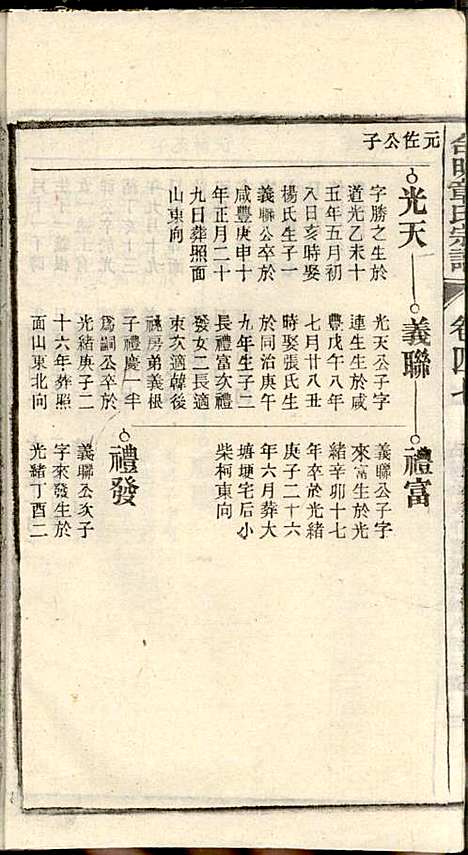 章氏宗譜
卷四
元佐公子
光天
字勝之生於
道光乙未十
五年五月初
八日亥時娶
楊氏生子一
義聯公卒於
咸豐庚申十
年正月二十
九日葬照面
山東向
義聯
光天公子字
連生生於咸
豐戊午八年
七月廿八丑
時娶張氏生
於同治庚午
九年生子二
長禮富次禮
發女二長適
束次適韓後
祧房弟義根
子禮慶一半
爲嗣公卒於
光緒庚子二
十六年葬照
面山東北向
禮富
義聯公子字
來富生於光
緒辛卯十七
年卒於光緒
庚子二十六
年六月葬大
塘埂宅后小
柴柯東向
禮發
義聯公次子
字來發生於
光緒丁酉二